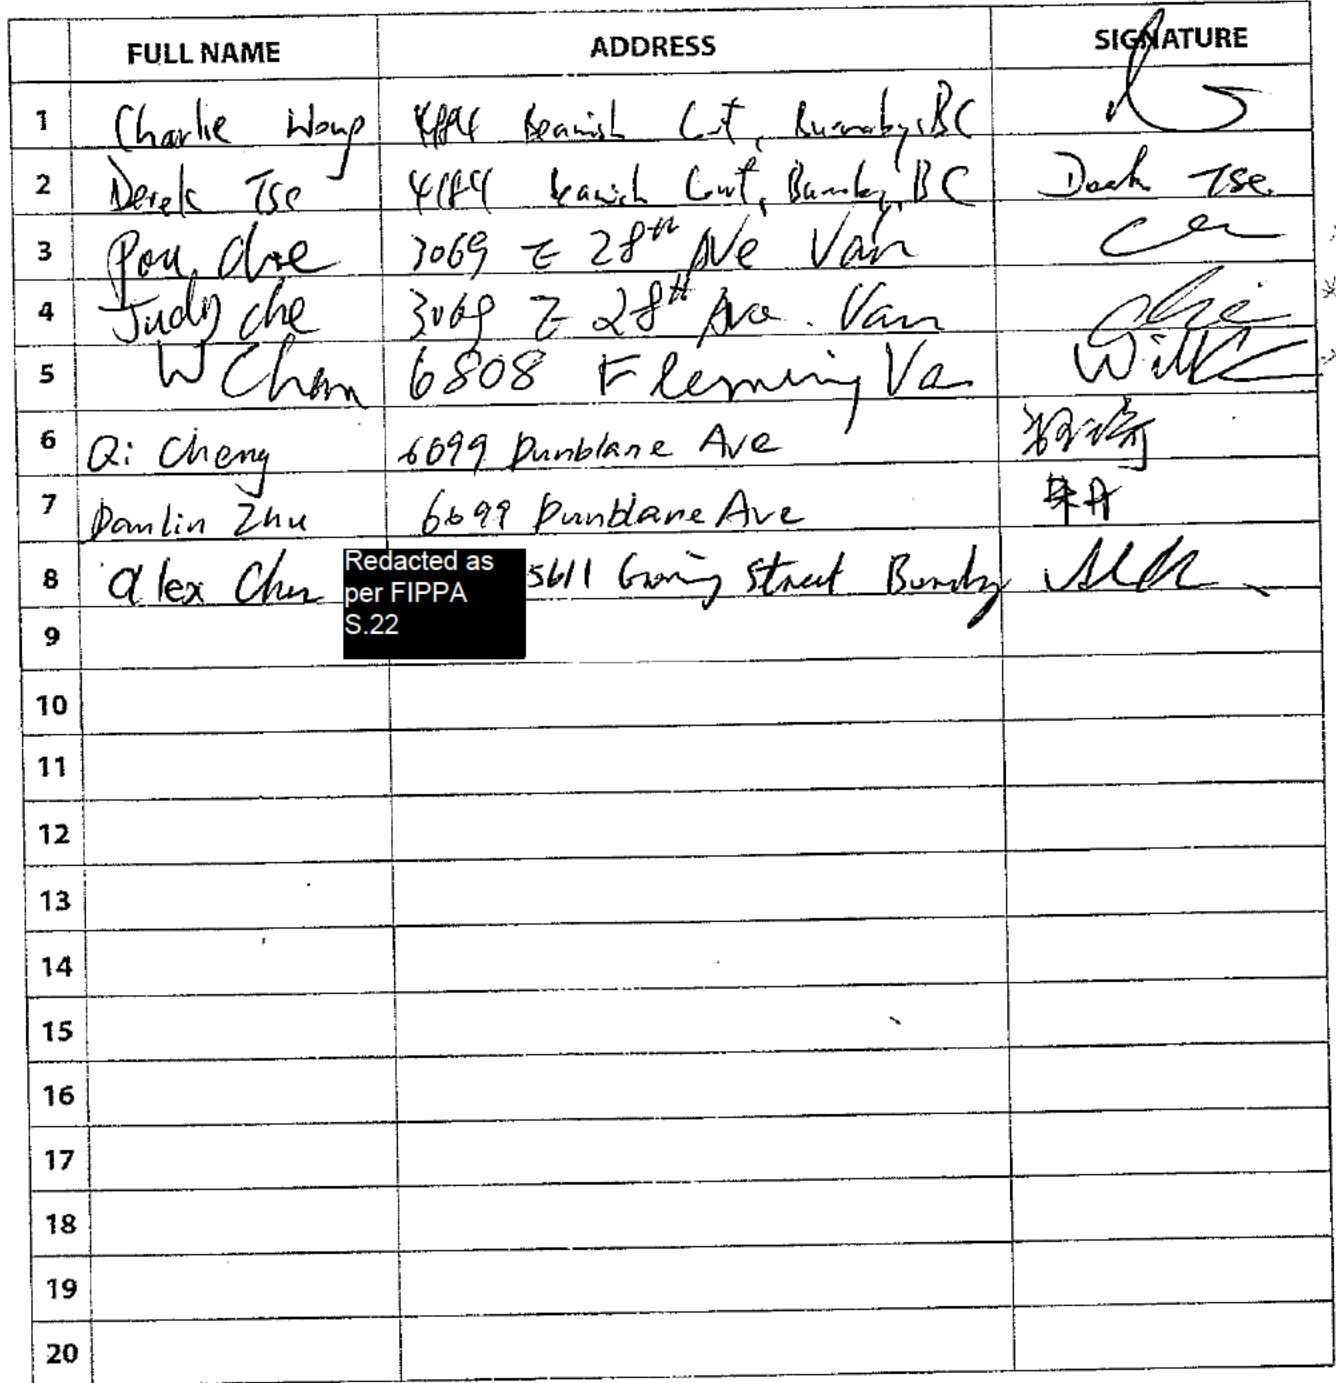 FULL NAME ADDRESS SIGNATURE
1 Charlie Wong Court, Burnaby, BC
2 Derek Tse 4184 Court, Burnaby, BC Derek Tse
3 3069 E 28th Ave Van
4 Judy che 3069 E 28th Ave. Van che
5 W Chan 6808 Fleming Va
6 Qi Cheng 6099 Dunblane Ave
7 Danlin Zhu 6699 Dunblane Ave 朱丹
8 alex Redacted as per FIPPA S.22 5611 Street
9
10
11
12
13
14
15
16
17
18
19
20